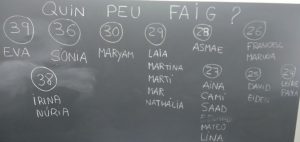 QUIN PEU FAIG ?
39
EVA
36
SÒNIA
30
MARYAM
29
LAIA
MARTINA
MARTÍ
MAR
NATHÀLIA
28
ASMAE
26
FRANCESC
MARINA
38
IRINA
NÚRIA
27
AINA
CAMI
SAAD
MATEO
LINA
25
DAVID
EIDEN